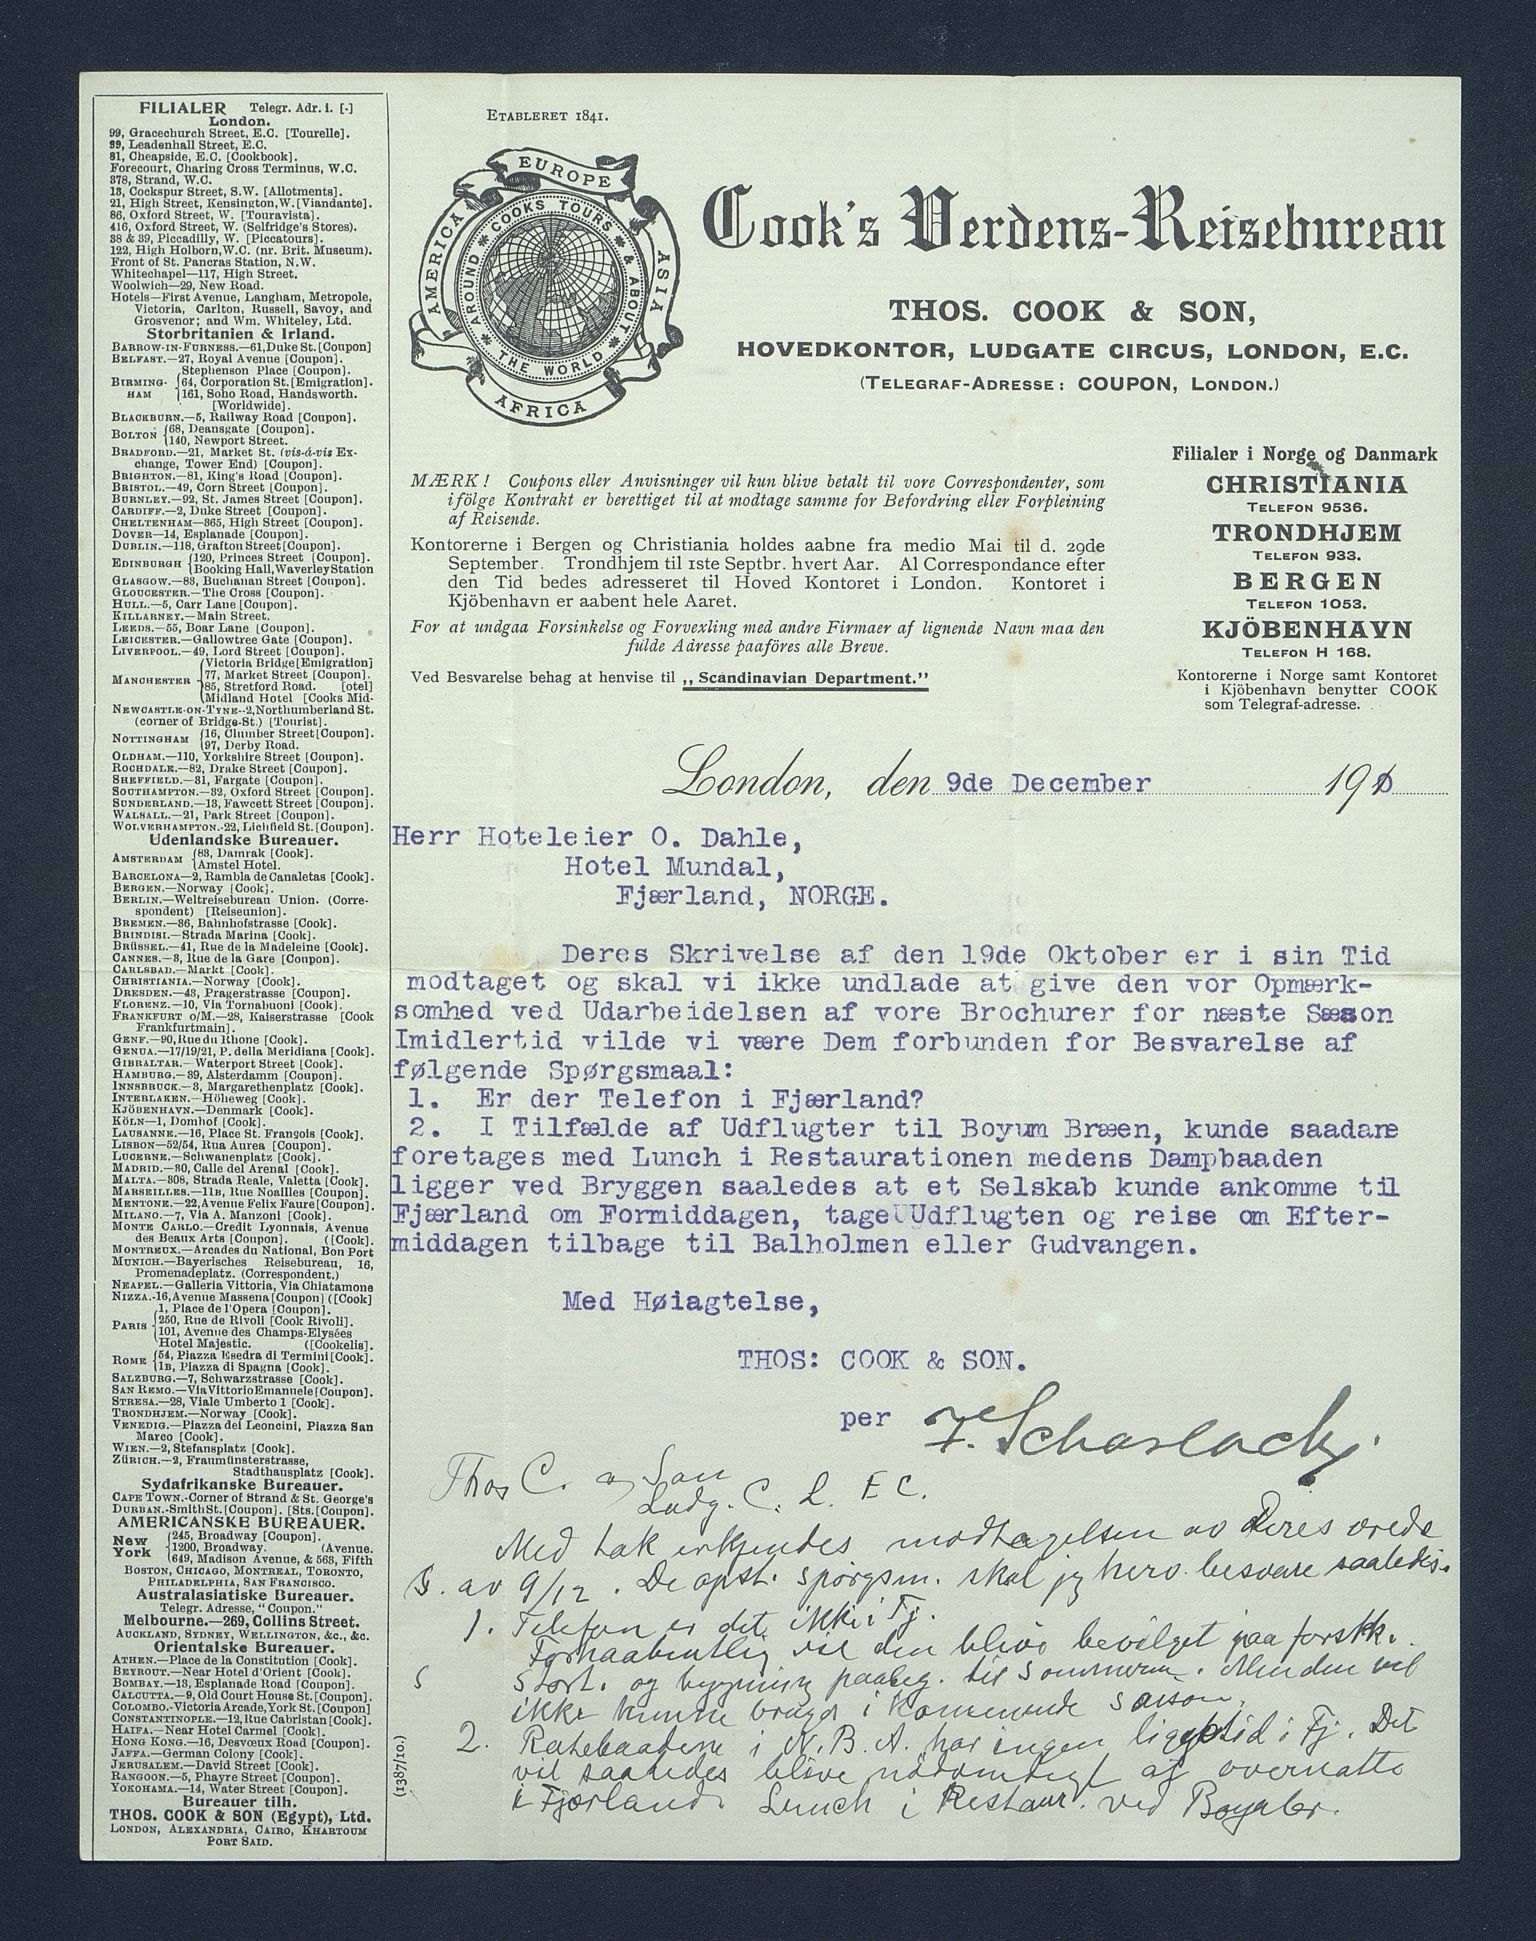 FILIALER Telegr. Adr. i. [-]
London.
99, Gracechurch Street, E.C. [Tourelle].
89, Leadenhall Street, E.C.
81, Cheapside, E.C. [Cookbook].
Forecourt, Charing Cross Terminus, W.C.
378, Strand, W.C.
13, Cockspur Street, S.W. [Allotments].
21, High Street, Kensington, W. [Viandante].
86, Oxford Street, W. [Touravista].
416, Oxford Street, W. (Selfridge's Stores).
38 & 39, Piccadilly, W. [Piccatours].
122, High Holborn, W.C. (nr. Brit. Museum).
Front of St. Pancras Station, N.W.
Whitechapel—117, High Street.
Woolwich—29, New Road.
Hotels—First Avenue, Langham, Metropole,
Victoria, Carlton, Russell, Savoy, and
Grosvenor; and Wm. Whiteley, Ltd.
Storbritanien & Irland.
BARROW-IN-FURNESS.—61, Duke St. [Coupon]
BELFAST.—27, Royal Avenue [Coupon].
Stephenson Place [Coupon].
BIRMINGHAM {64, Corporation St. [Emigration].
161, Soho Road, Handsworth.
[Worldwide].
BLACKBURN.—5, Railway Road [Coupon].
BOLTON {68, Deansgate [Coupon].
140, Newport Street.
BRADFORD.—21, Market St. (vis-á-vis Ex-
change, Tower End) [Coupon].
BRIGHTON.—81, King's Road [Coupon].
BRISTOL.—49, Corn Street [Coupon].
BURNLEY.—92, St. James Street [Coupon].
CARDIFF.—2, Duke Street [Coupon].
CHELTENHAM—365, High Street [Coupon].
DOVER—14, Esplanade [Coupon].
DUBLIN.—118, Grafton Street [Coupon].
EDINBURGH {120, Princes Street [Coupon].
Booking Hall, Waverley Station
GLASGOW.—83, Buchanan Street [Coupon].
GLOUCESTER.—The Cross [Coupon].
HULL.—5, Carr Lane [Coupon].
KILLARNEY.—Main Street.
LEEDS.—55, Boar Lane [Coupon].
LEICESTER.—Gallowtree Gate [Coupon].
LIVERPOOL.—49, Lord Street [Coupon].
MANCHESTER {Victoria Bridge [Emigration]
77, Market Street [Coupon].
85, Stretford Road. [otel]
Midland Hotel [Cooks Mid-
NEWCASTLE-ON-TYNE.-2, Northumberland St.
(corner of Bridge-St.) [Tourist].
NOTTINGHAM {16, Clumber Street [Coupon].
97, Derby Road.
OLDHAM.—110, Yorkshire Street [Coupon].
ROCHDALE.—82, Drake Street [Coupon].
SHEFFIELD.—31, Fargate [Coupon].
SOUTHAMPTON.—32, Oxford Street [Coupon].
SUNDERLAND.—13, Fawcett Street [Coupon].
WALSALL.—21, Park Street [Coupon].
WOLVERHAMPTON.-22, Lichfield St. [Coupon].
Udenlandske Bureauer.
AMSTERDAM {83, Damrak [Cook].
Amstel Hotel.
BARCELONA—2, Rambla de Canaletas [Cook].
BERGEN.—Norway [Cook].
BERLIN.—Weltreisebureau Union. (Corre-
spondent) [Reiseunion].
BREMEN.—36, Bahnhofstrasse [Cook].
BRINDISI.—Strada Marina [Cook].
BRÜSSEL.—41, Rue de la Madeleine [Cook].
CANNES.—3, Rue de la Gare [Coupon].
CARLSBAD.—Markt [Cook].
CHRISTIANIA.—Norway [Cook].
DRESDEN.—43, Pragerstrasse [Coupon].
FLORENZ.—10, Via Tornabuoni [Cook].
FRANKFURT o/M.—28, Kaiserstrasse [Cook
Frankfurtmain].
GENF.—90, Rue du Rhone [Cook].
GENUA.—17/19/21, P. della Meridiana [Cook].
GIBRALTAR.—Waterport Street [Cook].
HAMBURG.—39, Alsterdamm [Coupon].
INNSBRUCK.—3, Margarethenplatz [Cook].
INTERLAKEN.—Höheweg [Cook].
KJÖBENHAVN.—Denmark [Cook].
KÖLN—1, Domhof [Cook].
LAUSANNE.—16, Place St. François [Cook].
LISBON—52/54, Rua Aurea [Coupon].
LUCERNE.—Schwanenplatz [Cook].
MADRID.—30, Calle del Arenal [Cook].
MALTA.—308, Strada Reale, Valetta [Cook].
MARSEILLES.—11B, Rue Noailles [Coupon].
MENTONE.—22, Avenue Felix Faure [Coupon].
MILANO.—7, Via A. Manzoni [Cook].
MONTE CARLO.—Credit Lyonnais, Avenue
des Beaux Arts [Coupon]. ([Cook].
MONTREUX.—Arcades du National, Bon Port
MUNICH.—Bayerisches Reisebureau, 16,
Promenadeplatz. (Correspondent.)
NEAPEL.—Galleria Vittoria, Via Chiatamone
NIZZA.-16, Avenue Massena [Coupon] ([Cook]
PARIS {1, Place de l'Opera [Coupon].
250, Rue de Rivoli [Cook Rivoli].
101, Avenue des Champs-Elysées
Hotel Majestic. ([Cookelis].
ROME {54, Piazza Esedra di Termini [Cook].
1B, Piazza di Spagna [Cook].
SALZBURG.—7, Schwarzstrasse [Cook].
SAN REMO.—Via Vittorio Emanuele [Coupon].
STRESA.—28, Viale Umberto 1 [Cook].
TRONDHJEM.—Norway [Cook].
VENEDIG.—Piazza dei Leoncini, Piazza San
Marco [Cook].
WIEN.—2, Stefansplatz [Cook].
ZÜRICH.—2, Fraumünsterstrasse,
Stadthausplatz [Cook].
Sydafrikanske Bureauer.
CAPE TOWN.-Corner of Strand & St. George's
DURBAN.-Smith St. [Coupon]. [Sts. [Coupon].
AMERICANSKE BUREAUER.
New York {245, Broadway [Coupon].
1200, Broadway. (Avenue.
649, Madison Avenue, & 563, Fifth
BOSTON, CHICAGO, MONTREAL, TORONTO,
PHILADELPHIA, SAN FRANCISCO.
Australasiatiske Bureauer.
Telegr. Adresse, "Coupon."
Melbourne.—269, Collins Street.
AUCKLAND, SYDNEY, WELLINGTON, &c., &c.
Orientalske Bureauer.
ATHEN.—Place de la Constitution [Cook].
BEYROUT.—Near Hotel d'Orient [Cook].
BOMBAY.—13, Esplanade Road [Coupon].
CALCUTTA.—9, Old Court House St. [Coupon]
COLOMBO.-Victoria Arcade, York St. [Coupon]
CONSTANTINOPLE.—12, Rue Cabristan [Cook].
HAIFA.—Near Hotel Carmel [Cook].
HONG KONG.—16, Desvœux Road [Coupon].
JAFFA.—German Colony [Cook].
JERUSALEM.—David Street [Cook].
RANGOON.—5, Phayre Street [Coupon].
YOKOHAMA.—14, Water Street [Coupon].
Bureauer tilh.
THOS. COOK & SON (Egypt), Ltd.
LONDON, ALEXANDRIA, CAIRO, KHARTOUM
PORT SAID.
ETABLERET 1841.
EUROPE
AMERICA
ASIA
AFRICA
COOKS TOURS AROUND & ABOUT THE WORLD
Cook's Verdens-Reisebureau
THOS. COOK & SON,
HOVEDKONTOR, LUDGATE CIRCUS, LONDON, E.C.
(TELEGRAF-ADRESSE: COUPON, LONDON.)
MÆRK! Coupons eller Anvisninger vil kun blive betalt til vore Correspondenter, som
ifölge Kontrakt er berettiget til at modtage samme for Befordring eller Forpleining
af Reisende.
Kontorerne i Bergen og Christiania holdes aabne fra medio Mai til d. 29de
September. Trondhjem til 1ste Septbr. hvert Aar. Al Correspondance efter
den Tid bedes adresseret til Hoved Kontoret i London. Kontoret i
Kjöbenhavn er aabent hele Aaret.
For at undgaa Forsinkelse og Forvexling med andre Firmaer af lignende Navn maa den
fulde Adresse paaföres alle Breve.
Ved Besvarelse behag at henvise til „Scandinavian Department."
Filialer i Norge og Danmark
CHRISTIANIA
TELEFON 9536.
TRONDHJEM
TELEFON 933.
BERGEN
TELEFON 1053.
KJÖBENHAVN
TELEFON H 168.
Kontorerne i Norge samt Kontoret
i Kjöbenhavn benytter COOK
som Telegraf-adresse.
London, den 9de December 1910
Herr Hoteleier O. Dahle,
Hotel Mundal,
Fjærland, NORGE.
Deres Skrivelse af den 19de Oktober er i sin Tid
modtaget og skal vi ikke undlade at give den vor Opmærk-
somhed ved Udarbeidelsen af vore Brochurer for næste Sæson
Imidlertid vilde vi være Dem forbunden for Besvarelse af
følgende Spørgsmaal:
1. Er der Telefon i Fjærland?
2. I Tilfælde af Udflugter til Boyum Bræen, kunde saadane
foretages med Lunch i Restaurationen medens Dampbaaden
ligger ved Bryggen saaledes at et Selskab kunde ankomme til
Fjærland om Formiddagen, tage Udflugten og reise om Efter-
middagen tilbage til Balholmen eller Gudvangen.
Med Høiagtelse,
THOS: COOK & SON.
per
Thos C. og Son
Ludg. C. L. E C.
Med tak erkjendes modtagelsen av Deres ærede
S. av 9/12. De opst. spörgsm. skal jeg herv. besvare saaledes.
1. Telefon er det ikke i Fj.
Forhaabentlig vil den blive bevilget paa forstk.
Stort. og bygning paabeg. til sommeren. Men den vil
ikke kunne bruges i kommende saison.
2. Rutebaadene i N. B. A. har ingen liggetid i Fj. Det
vil saaledes blive nödvendigt at overnatte
i Fjærland. Lunch i Restaur. ved
(1387/10.)